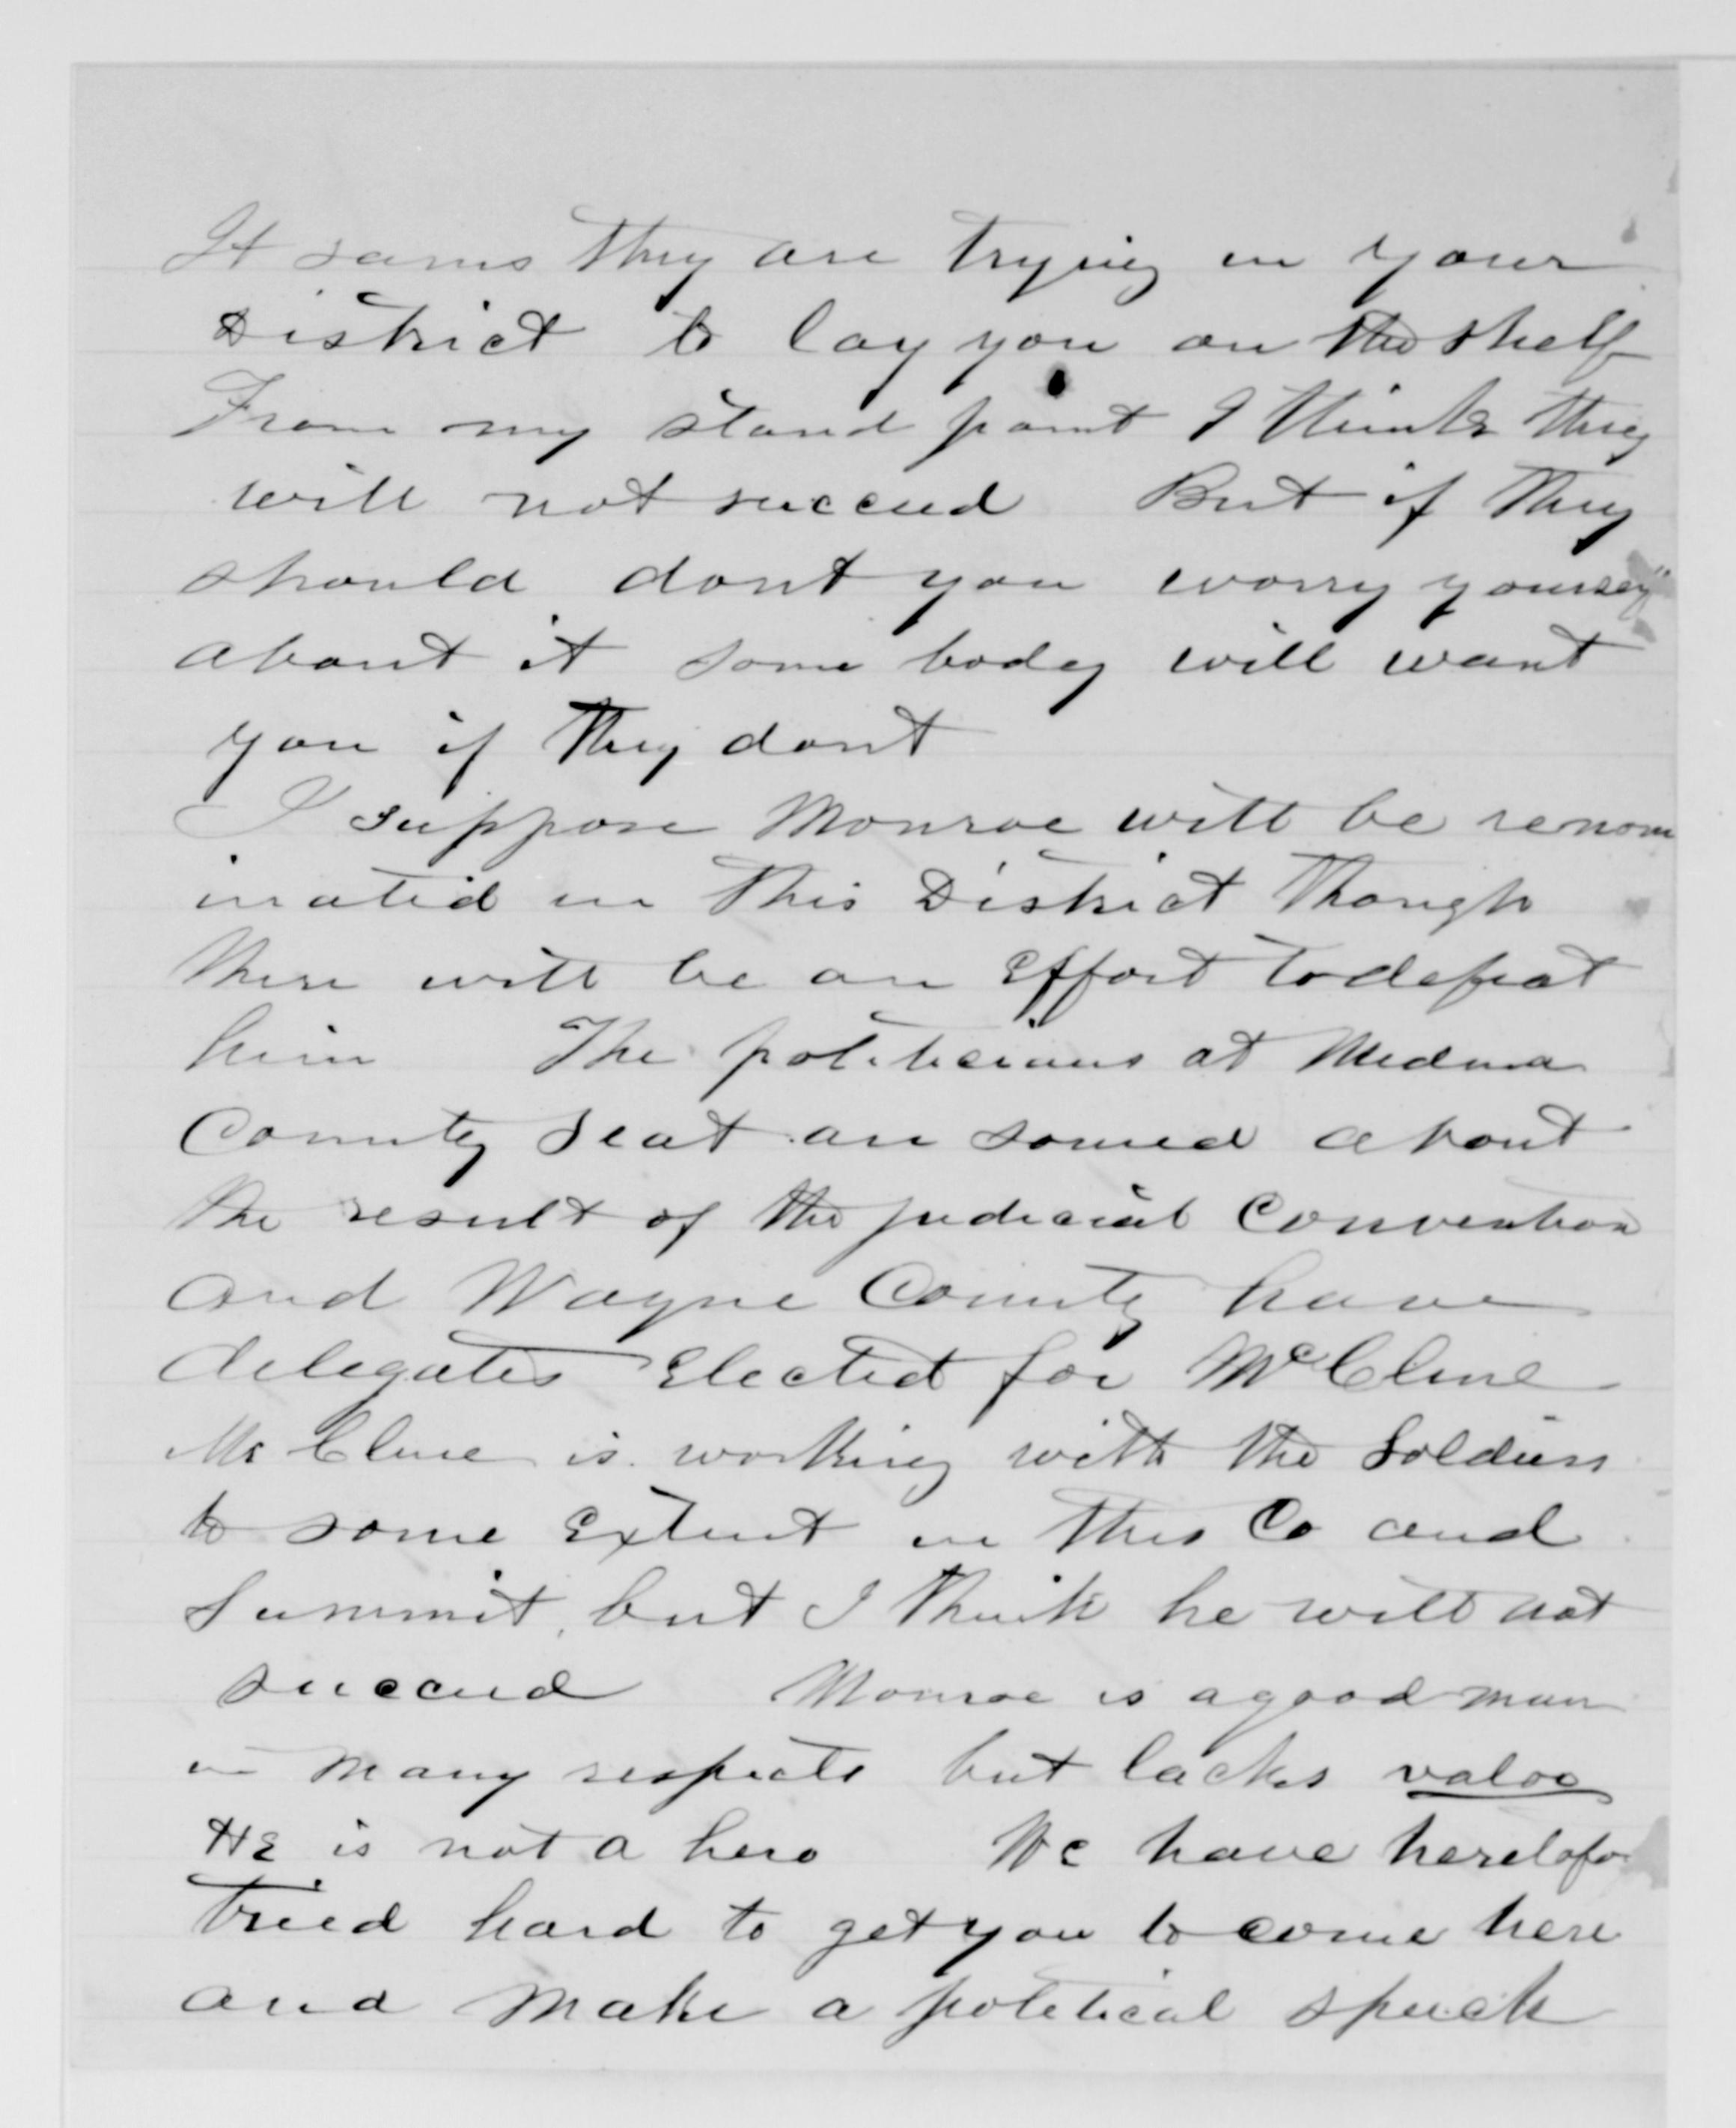 It sams they are trying in your
District to lay you on the shelf
From my stand point I think they
will not succeed But if they
should dont you worry yourself
about it some body will want
you if they dont
I suppose Monroe will be renom
inated in this District though
there will be an Effort to defeat
him The politicians at Medina
County Seat are soured about
the result of the judicial Convention
and Wayne County have
delegates Elected for McClure
McClure is working with the Soldiers
to some Extent in this Co and
Summit, but I think he will not
succeed Monroe is a good man
in many respects but lacks valor
He is not a hero We have heretofo
tried hard to get you to come here
and make a political speech